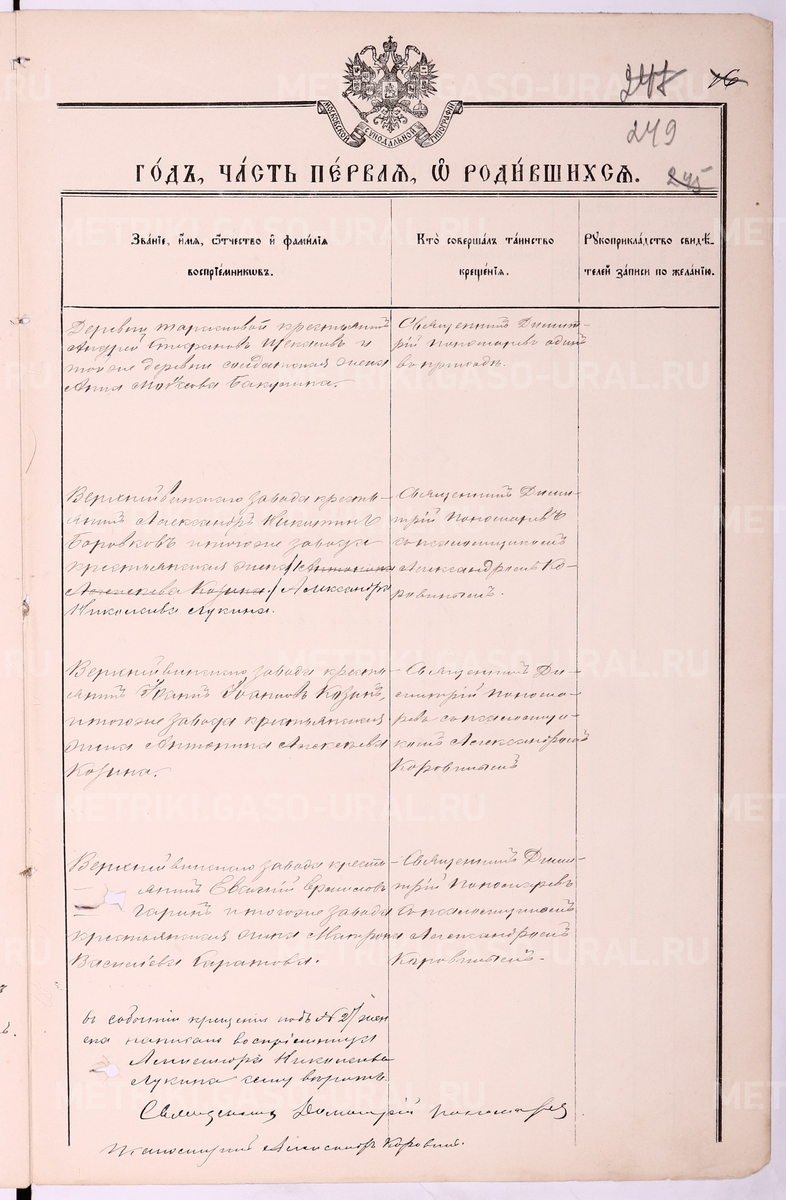 МОСКОВСКОЙ СѴНОДАЛЬНОЙ ТИПОГРАФІИ
247
249
245
ГО́ДЪ, ЧА́СТЬ ПЕ́РВАЯ, Ѽ РОДИ́ВШИХСЯ.
Зва́нїе, и҆́мѧ, ѻ҆́тчество и҆ фамѝлїѧ
воспрїе́мникѡвъ.
Кто̀ соверша́лъ та́инство
креще́нїѧ.
Рꙋкоприкла́дство свидѣ́-
телей за́писи по жела́нїю.
Деревни Тарасовой крестьянинъ
Андрей Стефановъ и
тоже деревни солдатская жена
Анна Бакунина.
Священникъ Димит-
рій Пономаревъ одинъ
въ приходѣ.
Верхнейвинскаго завода кресть-
янинъ Александръ Никитинъ
Боровковъ и тогоже завода
крестьянская жена /Антонина
Алексеева Козина./ Александра
Николаева Лукина.
Священникъ Дими-
трій Пономаревъ
съ псаломщикомъ
Александромъ Ко-
ровинымъ.
Верхнейвинскаго завода кресть-
янинъ Иванъ Ивановъ Козинъ,
и тогоже завода крестьянская
жена Антонина Алексеева
Козина.
Священникъ Ди-
митрій Понома-
ревъ съ псаломщи-
комъ Александромъ
Коровинымъ
Верхнейвинскаго завода кресть-
янинъ Евгеній
Гаринъ и тогоже завода
крестьянская жена
Василіева
Священникъ Дими-
трій Пономаревъ
съ псаломщикомъ
Александромъ
Коровинымъ.
въ событіи крещенія подъ № 27
написано воспріемница
Александра Николаева
Лукина сему вѣрить.
Священникъ Димитрій Пономаревъ
Псаломщикъ Александръ Коровинъ.
METRIKI.GASO-URAL.RU